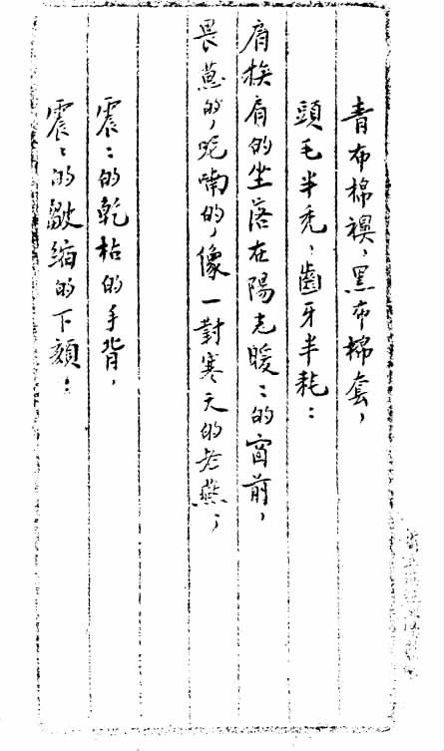 青布棉襖，黑布棉套，
頭毛半禿，齒牙半耗：
肩挨肩的坐落在陽光暖〻的窗前，
畏葸的，呢喃的，像一對寒天的老燕；
震〻的乾枯的手背，
震〻的皺縮的下頦：